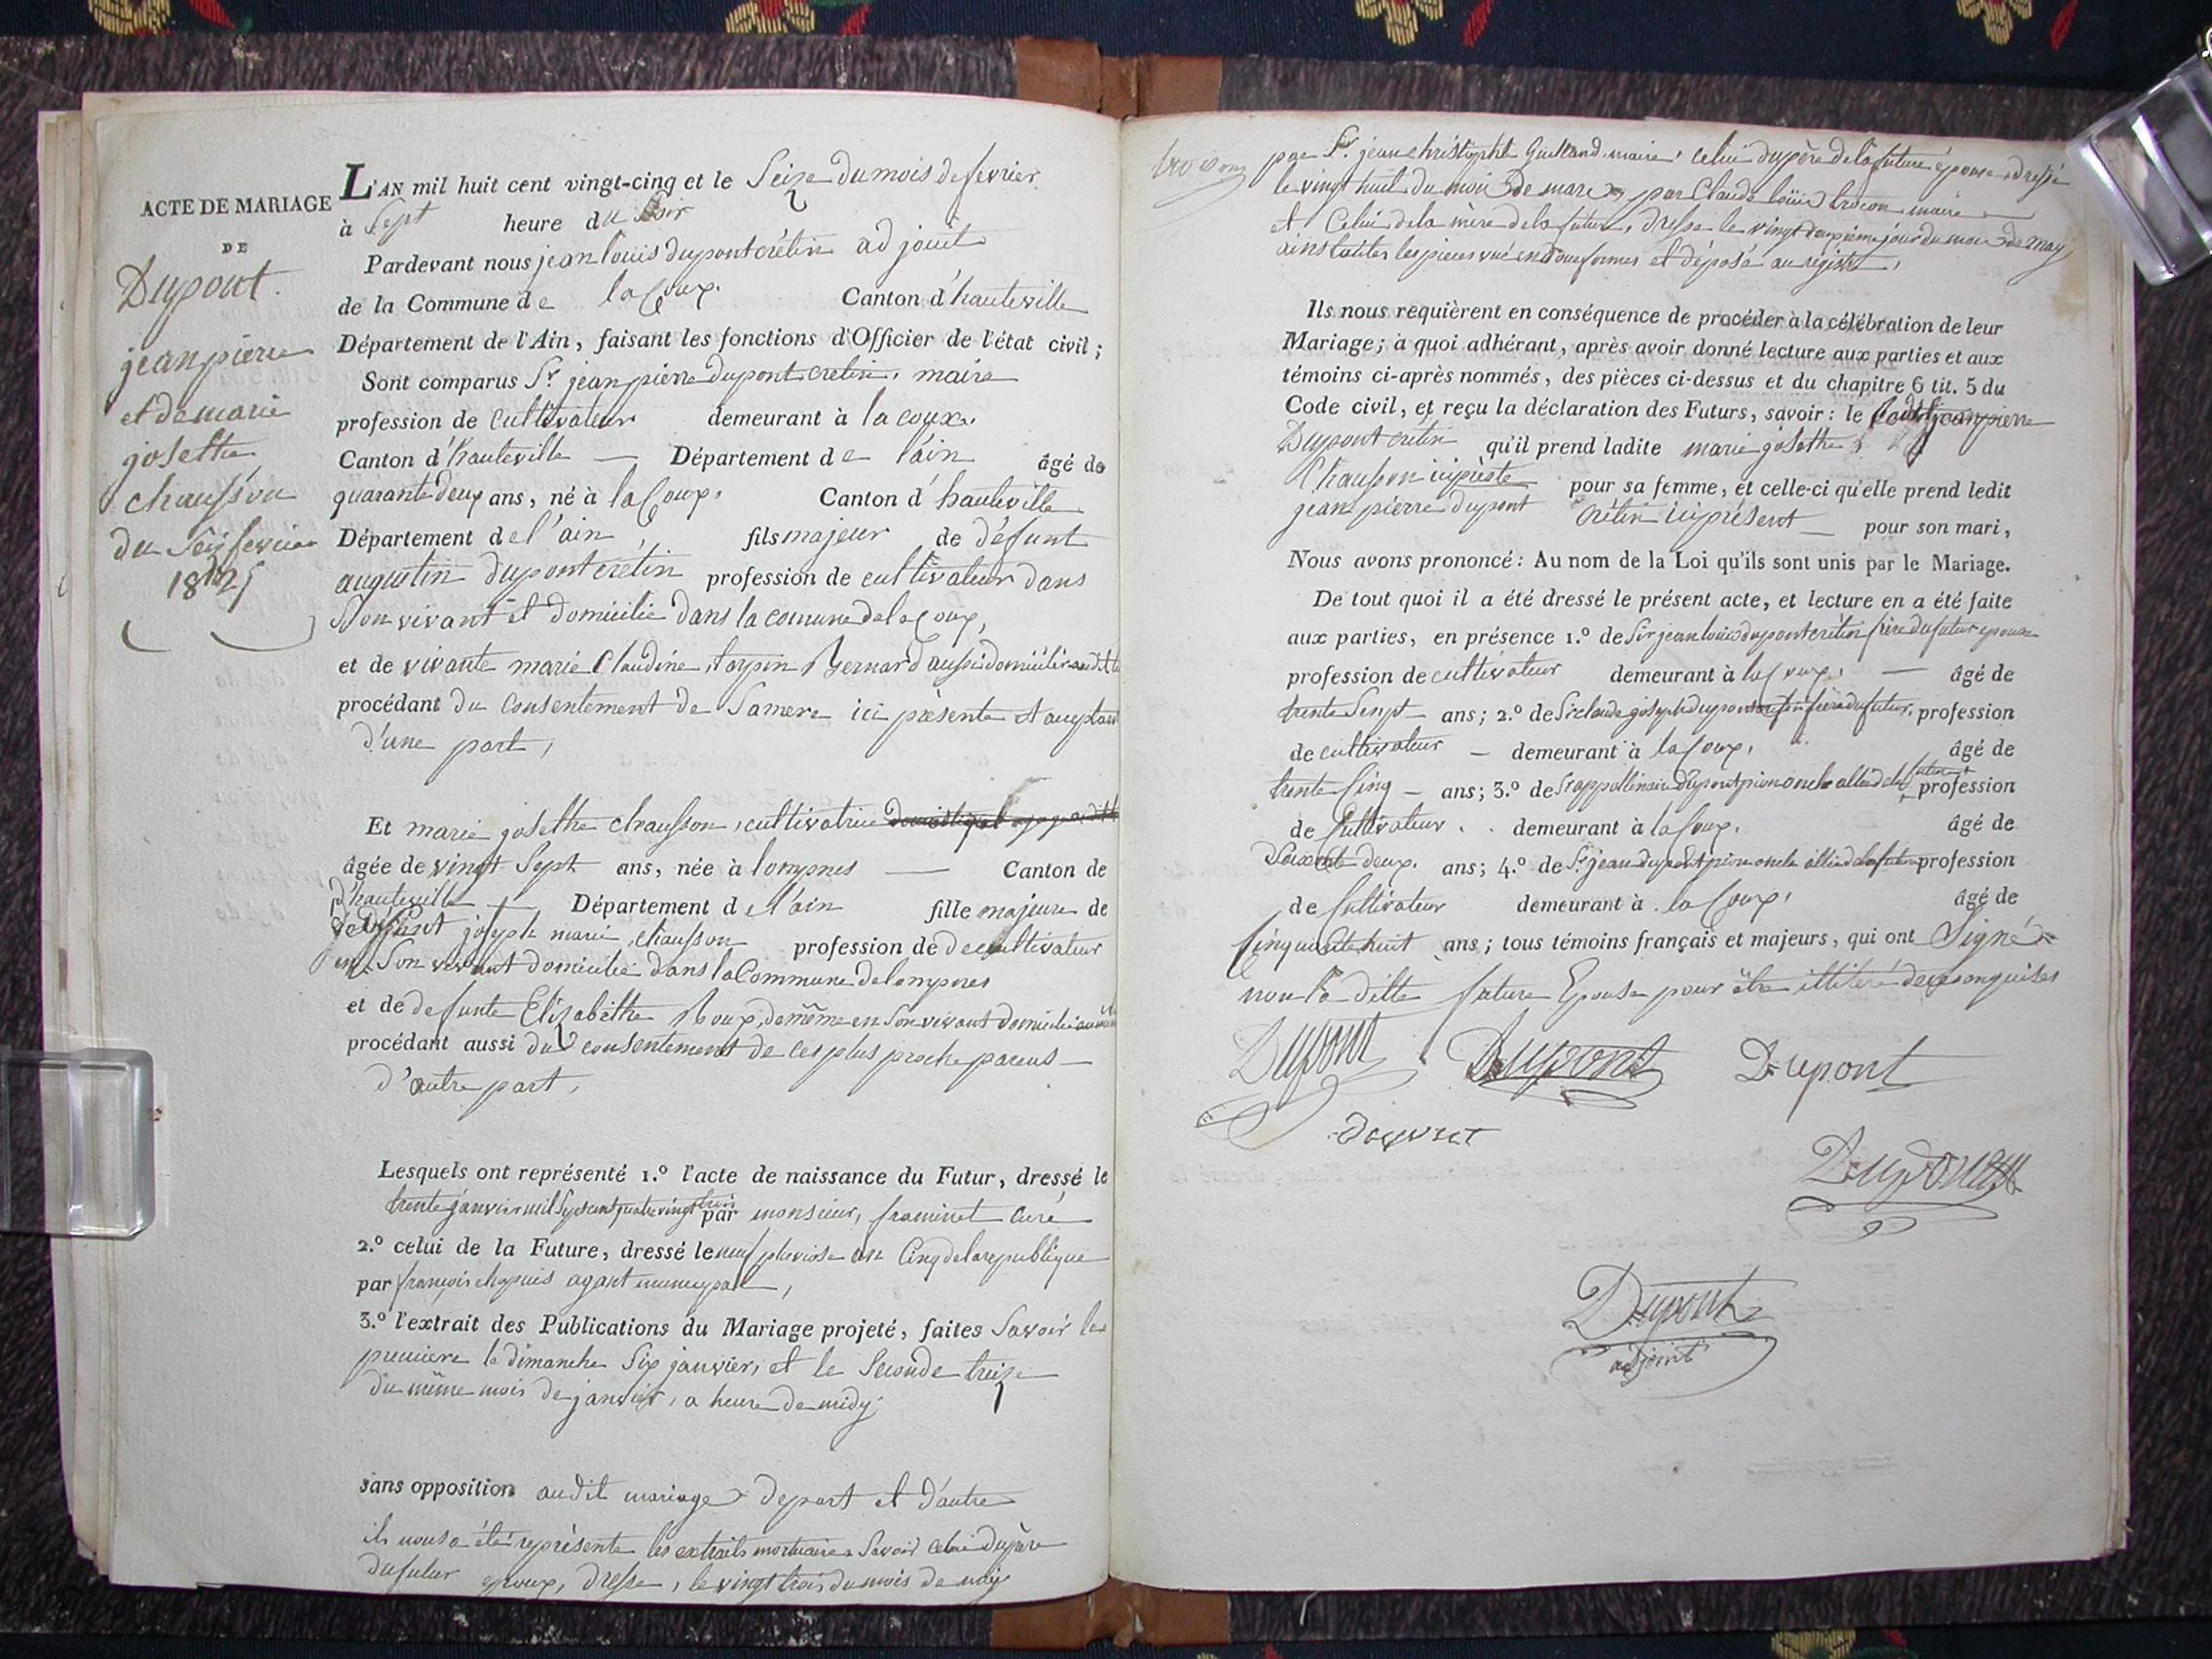 ACTE DE MARIAGE
DE
Dupont
jean pierre
et de marie
josette
chausson
du seize fevrier
1825
L'AN mil huit cent vingt-cinq et le Seize du mois de fevrier
à Sept heure du Soir
Pardevant nous jean louis dupont crétin adjouit
de la Commune de la Coux. Canton d'hauteville
Département de l'Ain, faisant les fonctions d'Officier de l'état civil;
Sont comparus Sr. jean pierre dupont cretin, maire
profession de Cultivateur demeurant à la coux.
Canton d'hauteville — Département de l'ain âgé de
quarante deux ans, né à la Coux, Canton d'hauteville
Département de l'ain, fils majeur de défunt
augustin dupont crétin profession de cultivateur dans
Son vivant et domicilie dans la comune de la Coux,
et de vivante marie Claudine Bernard aussi domicilié
procédant du Consentement de Sa mere ici présente et
d'une part,
Et marie josette chausson, cultivatrice
âgée de vingt Sept ans, née à lompnes — Canton de
d'hauteville Département de l'ain fille majeure de
joseph marie chausson profession de de cultivateur
en Son vivant domicilié dans la Commune de lompnes
et de defunte Elizabethe Roux, de même en Son vivant domicilié
procédant aussi du consentement de ces plus proche parens —
d'autre part,
Lesquels ont représenté 1.º l'acte de naissance du Futur, dressé le
trente janvier mil Sept cent quatre vingt trois par monsieur, framinet curé
2.º celui de la Future, dressé le neuf pluviose an Cinq de la republique
par françois chapuis agant municypal,
3.º l'extrait des Publications du Mariage projeté, faites Savoir la
premiere le dimanche Six janvier, et le Seconde treize
du même mois de janvier, a heure de midy
sans opposition audit mariage de part et d'autre
ils nous a été représente les extraits mortuaires Savoir celui du père
du futur epoux, dresse, le vingt trois du mois de may
par Sr. jean christophe maire, celui du père de la future épouse, dressé
le vingt huit du mois de mars, par Claude loüis maire
et Celui de la mère de la future, dresse le vingt deuxième jour du mois de may
ainsi toutes les pieces vue en due formes et déposé au registre,
Ils nous requièrent en conséquence de procéder à la célébration de leur
Mariage; à quoi adhérant, après avoir donné lecture aux parties et aux
témoins ci-après nommés, des pièces ci-dessus et du chapitre 6 tit. 5 du
Code civil, et reçu la déclaration des Futurs, savoir: le jean pierre
Dupont cretin qu'il prend ladite marie josette
Chausson pour sa femme, et celle-ci qu'elle prend ledit
jean pierre dupont crétin ici présent — pour son mari,
Nous avons prononcé: Au nom de la Loi qu'ils sont unis par le Mariage.
De tout quoi il a été dressé le présent acte, et lecture en a été faite
aux parties, en présence 1.º de Sir jean louis dupont crétin frère du futur epoux
profession de cultivateur demeurant à la Coux, — âgé de
trente Sept — ans; 2.º de Sr claude joseph dupont cretin frère du futur, profession
de cultivateur — demeurant à la Coux, âgé de
trente Cinq — ans; 3.º de Sr appollinaire dupont oncle allié de la future profession
de Cultivateur demeurant à la Coux, âgé de
Soixante deux ans; 4.º de Sr jean dupont oncle allié de la future profession
de Cultivateur demeurant à la Coux, âgé de
Cinquante huit ans; tous témoins français et majeurs, qui ont Signé
non la ditte future Epouse pour être illitéré de ce enquises
Dupont Dupont Dupont
Dupont
Dupont
adjoint